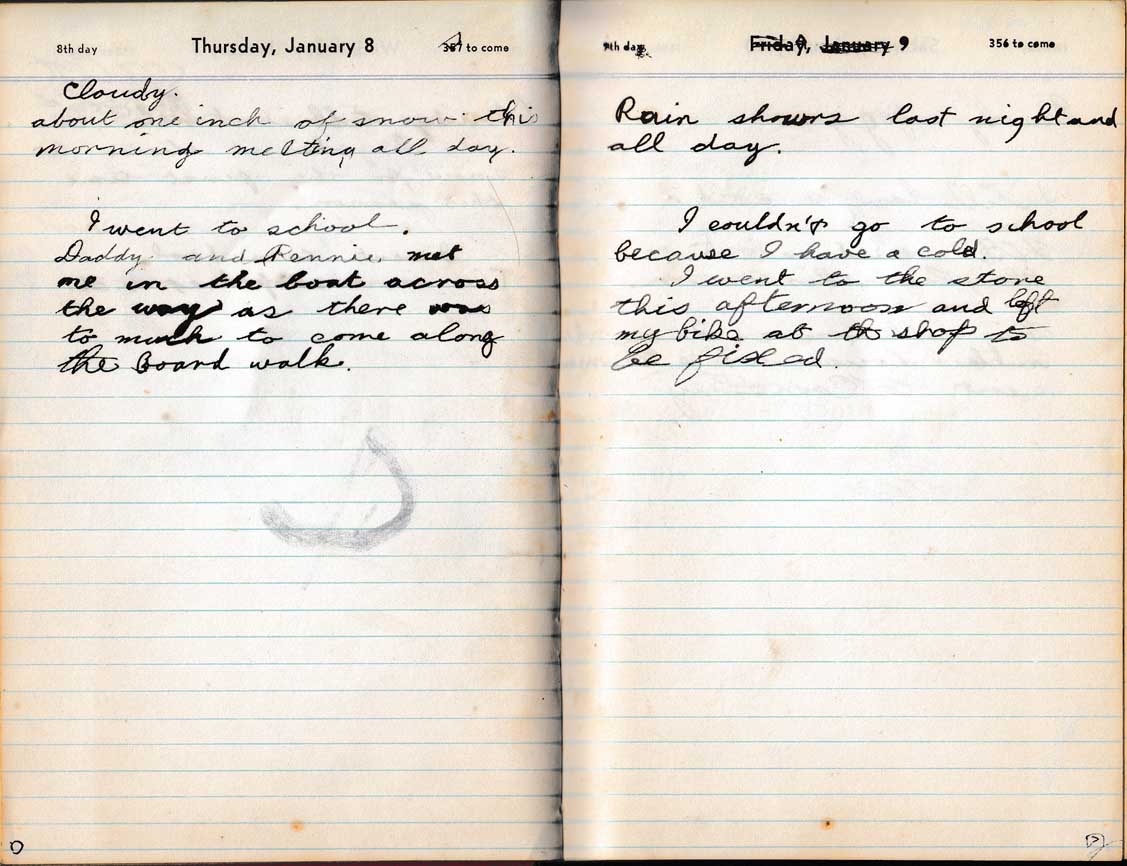 8th day Thursday, January 8 357 to come
Cloudy.
about one inch of snow this
morning melting all day.
I went to school.
Daddy and Pennie met
me in the boat across
the way as there was
to much to come along
the Board walk.
9th day Friday, January 9 356 to come
Rain showrs last night and
all day.
I couldn't go to school
because I have a cold.
I went to the store
this afternoon and left
my bike at th shop to
be fixed.